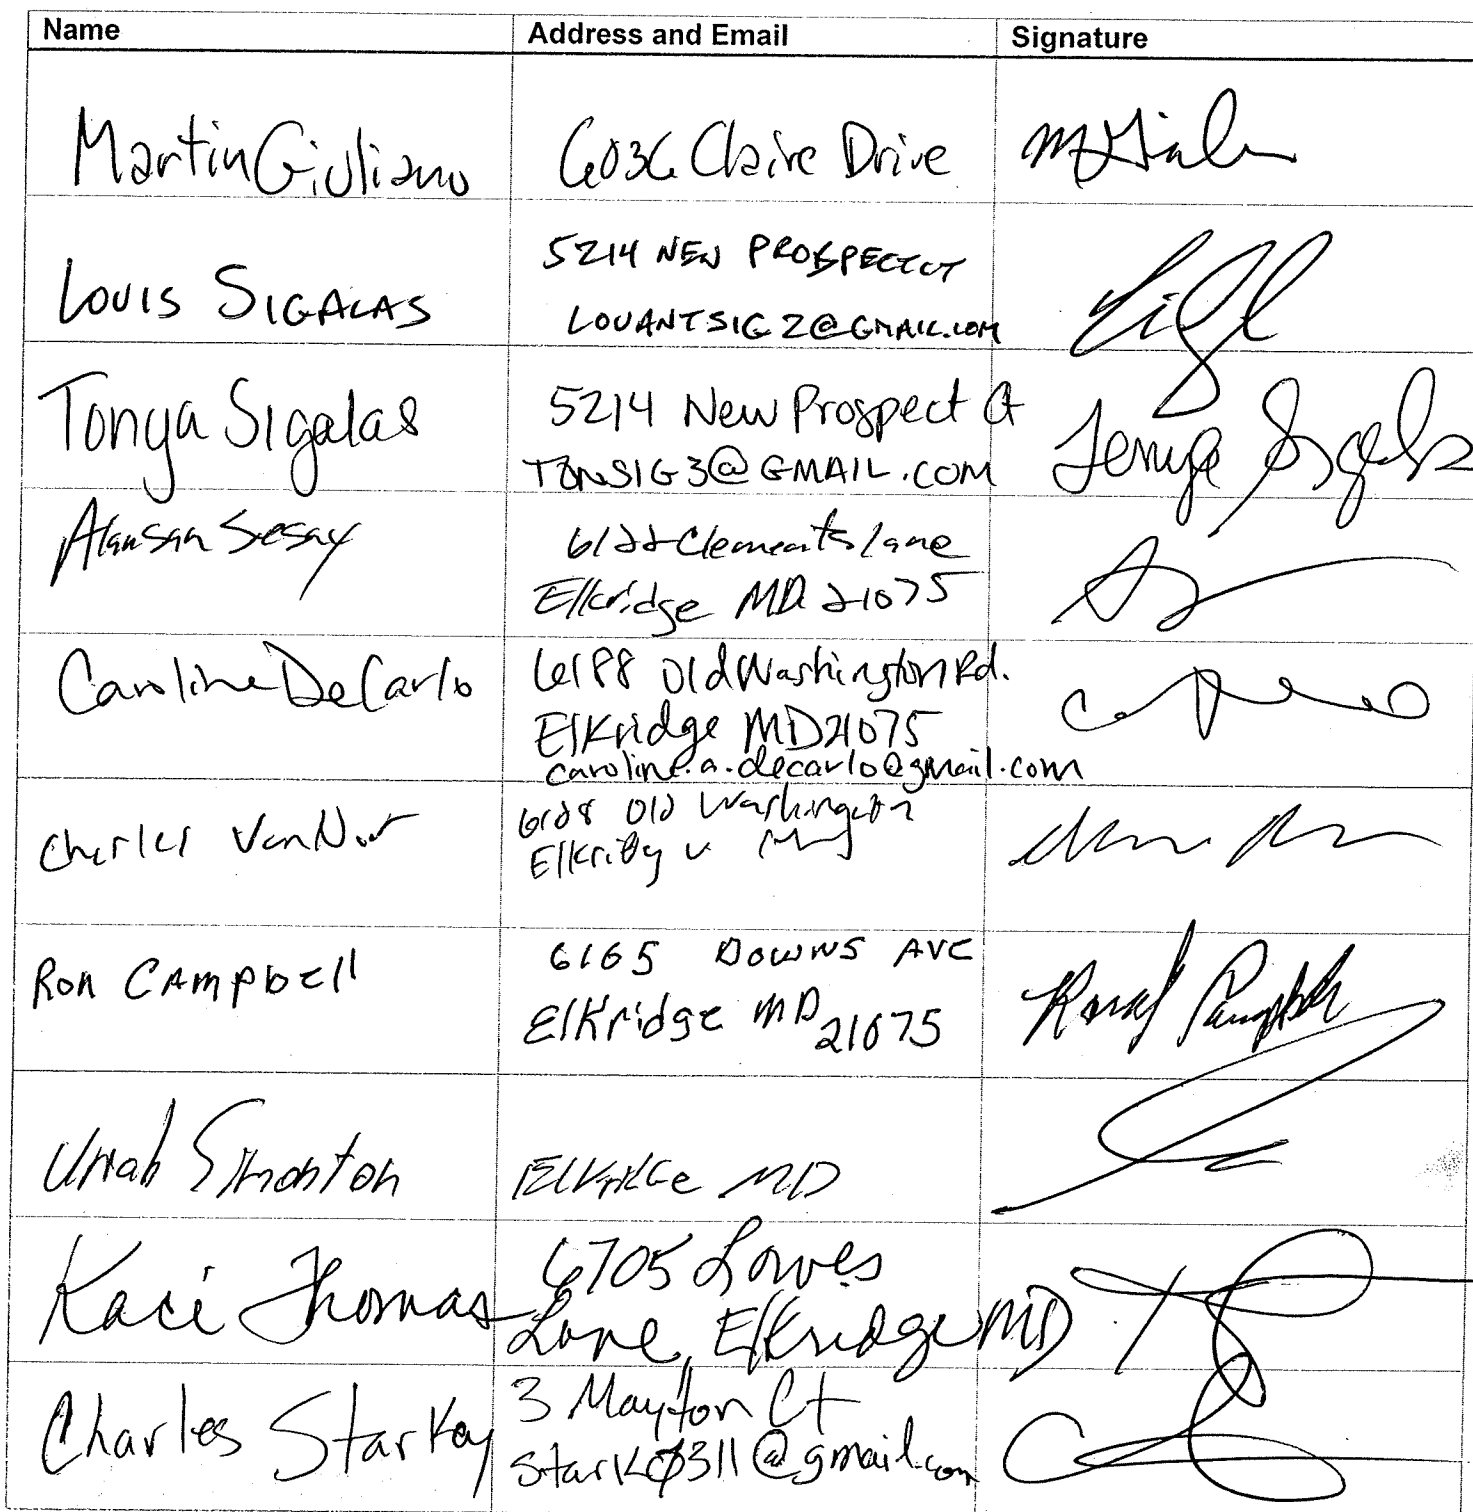 Name Address and Email Signature
Martin Giuliano 6036 Claire Drive
Louis Sigalas 5214 New Prospect Ct
LOUANTSIG2@GMAIL.COM
Tonya Sigalas 5214 New Prospect Ct
TONSIG3@GMAIL.COM
Tonya Sigalas
Alansan Sesay 6122 Clements Lane
Elkridge MD 21075
Caroline DeCarlo 6188 Old Washington Rd.
Elkridge MD 21075
caroline.a.decarlo@gmail.com
Charles 6128 Old Washington
Ron Campbell 6165 Downs Ave
Elkridge MD 21075
Uriah Simonton Elkridge MD
Kaci Thomas 6705 Lowes
Lane, Elkridge MD
Charles Starkey 3 Mayfon Ct
stark0311@gmail.com